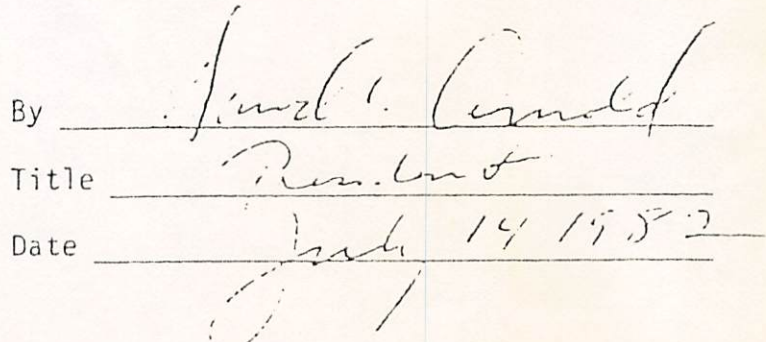 By
Title President
Date July 14 1982